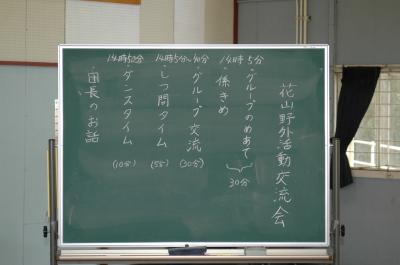 花山野外活動交流会
14時5分
・グループのめあて
係きめ
30分
14時35分〜40分
・グループ交流
(30分)
・しつ問タイム
(5分)
14時50分
・ダンスタイム
(10分)
・団長のお話